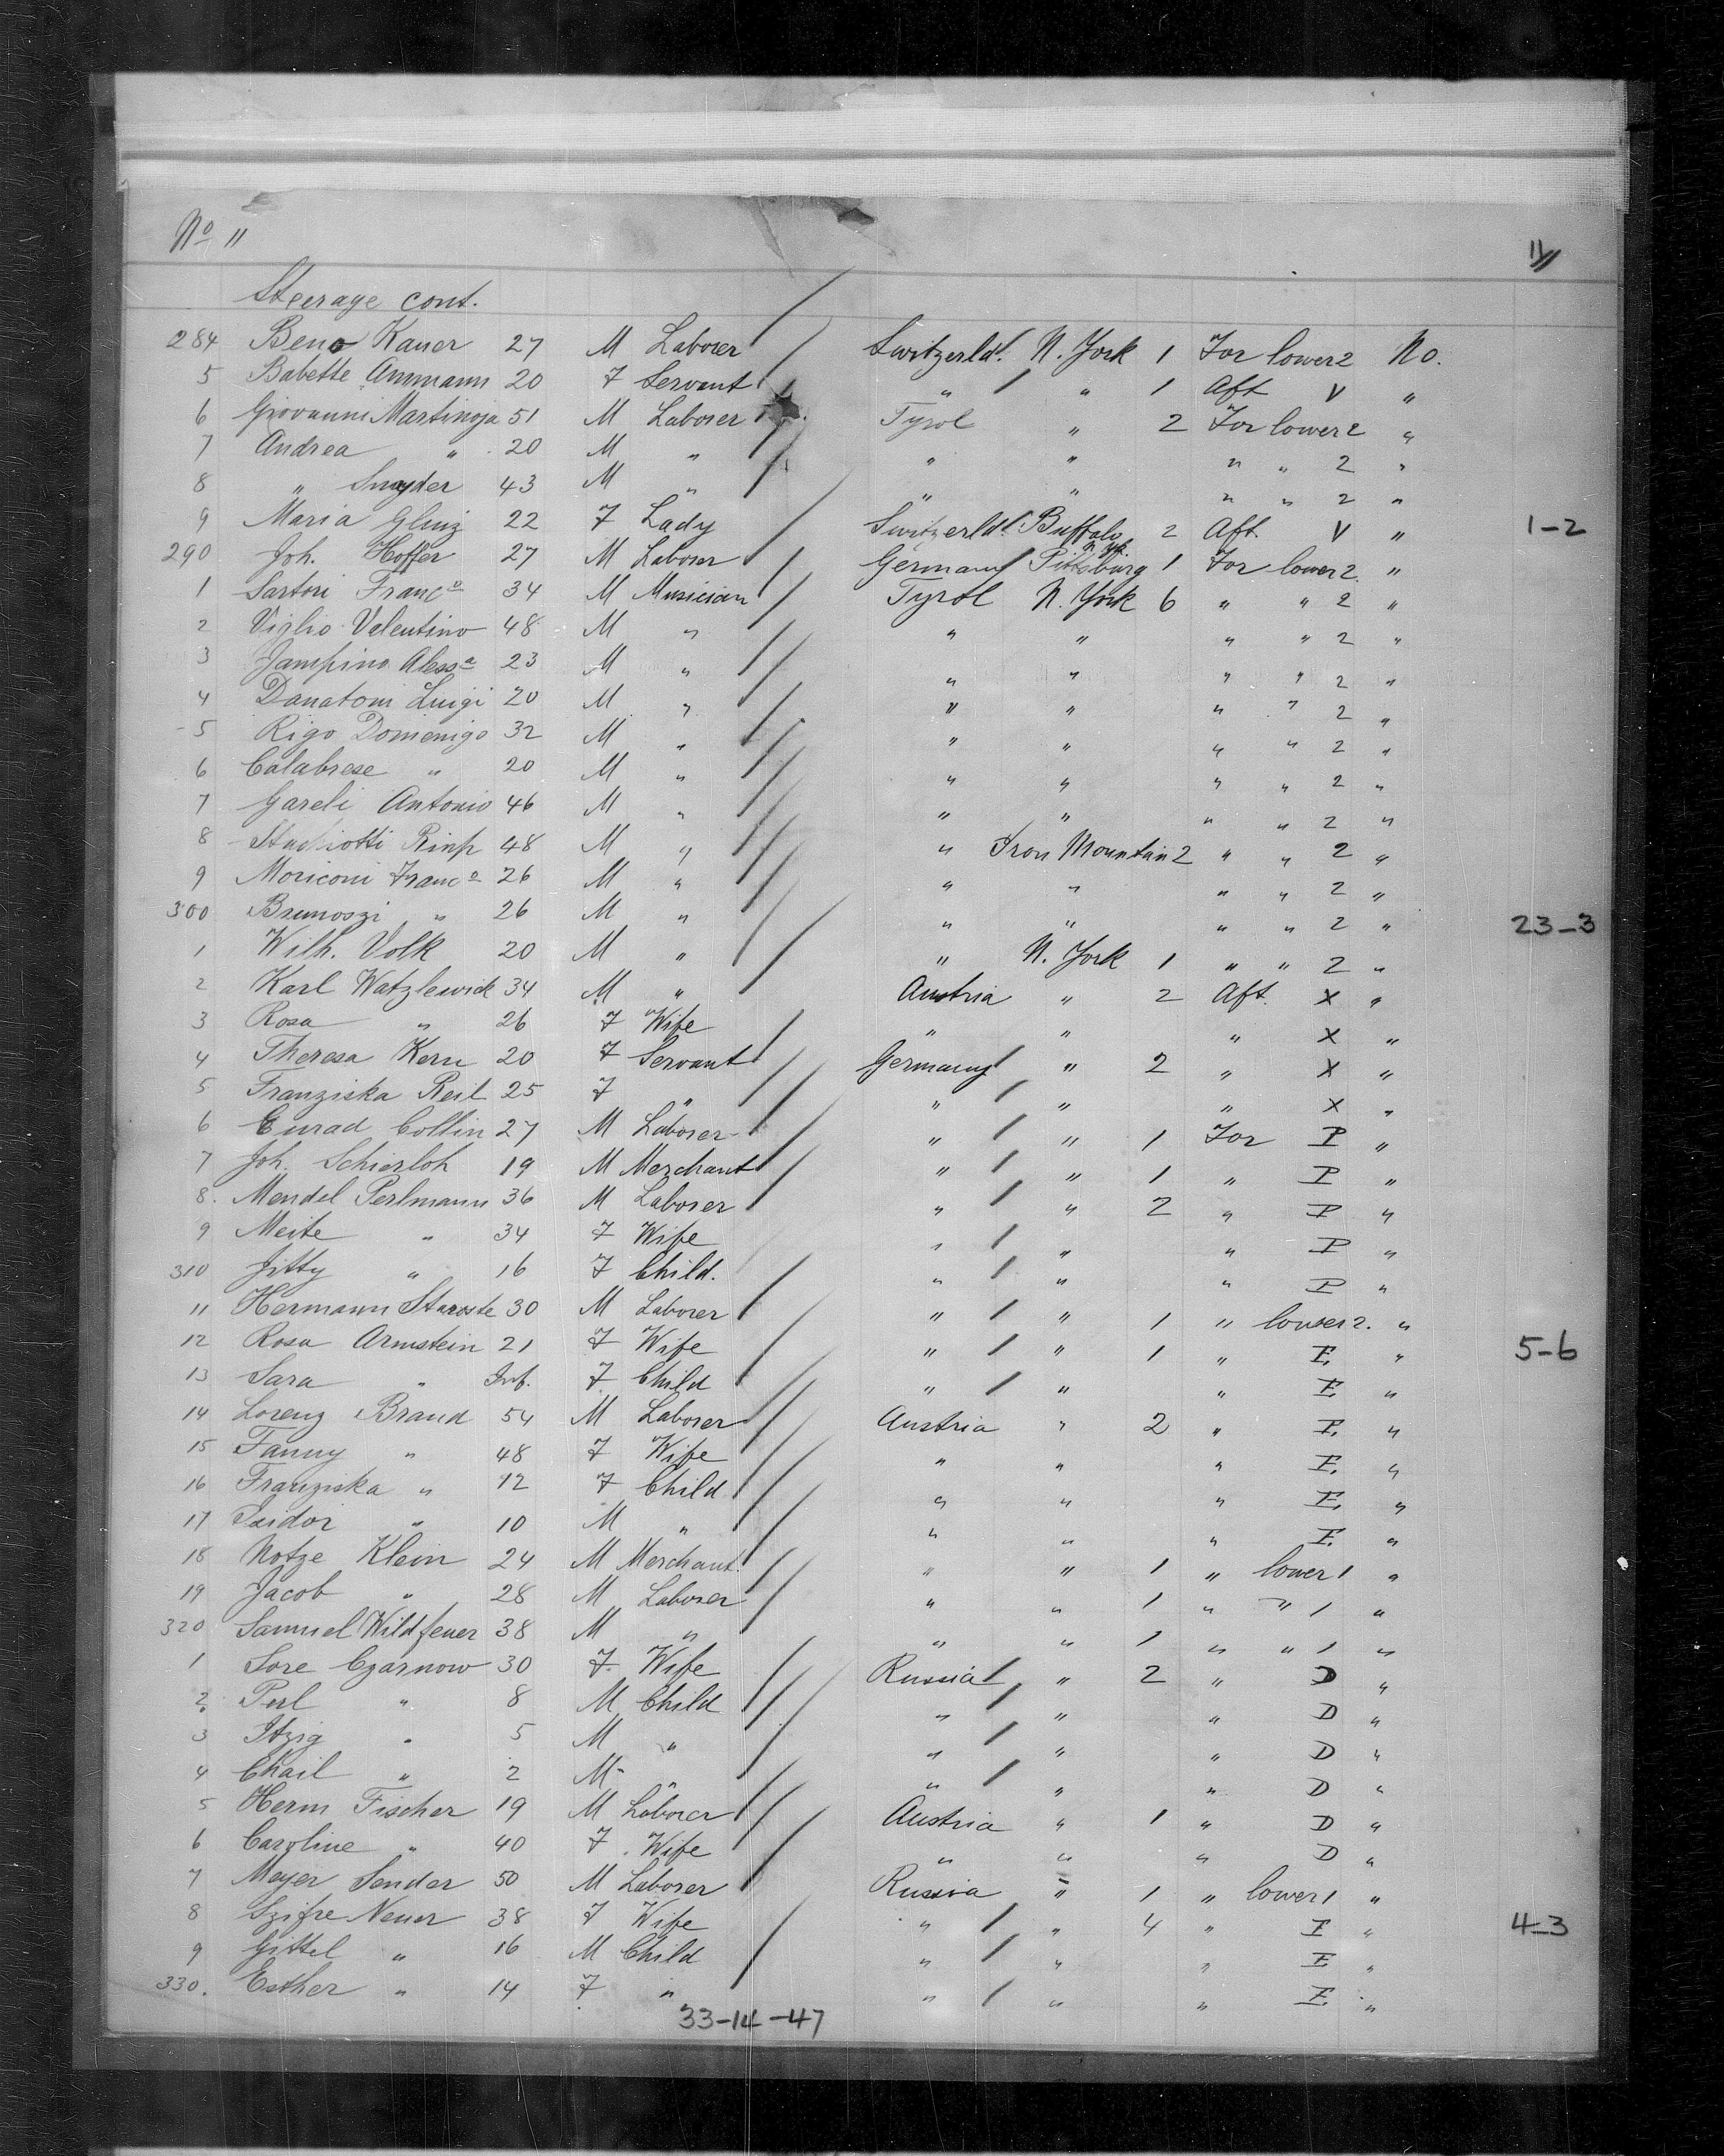 No 11 11
Steerage cont.
284 Beno Kaner 27 M Laborer Switzerld. N. York 1 For lower 2 No.
5 Babette Ammann 20 F Servant " " 1 Aft V "
6 Giovanni Martinoja 51 M Laborer Tyrol " 2 For lower 2 "
7 Andrea " 20 M " " " " " 2 "
8 " Snyder 43 M " " " " " 2 "
9 Maria Glinz 22 F Lady Switzerld. Buffalo 2 Aft. V " 1-2
290 Joh. Hoffer 27 M Laborer Germany Pittsburg 1 For lower 2. "
1 Sartori Franco 34 M Musician Tyrol N. York 6 " " 2 "
2 Viglio Valentino 48 M " " " " " 2 "
3 Jampino Alessa 23 M " " " " " 2 "
4 Danatoni Luigi 20 M " " " " " 2 "
5 Rigo Domenigo 32 M " " " " " 2 "
6 Calabrese " 20 M " " " " " 2 "
7 Gareli Antonio 46 M " " " " " 2 "
8 Rinp 48 M " " Iron Mountain 2 " " 2 "
9 Moriconi Franco 26 M " " " " " 2 "
300 Brunoszi " 26 M " " " " " 2 " 23-3
1 Wilh. Volk 20 M " " N. York 1 " " 2 "
2 Karl Watzlewick 34 M " Austria " 2 Aft. X "
3 Rosa " 26 F Wife " " " X "
4 Theresa Kern 20 F Servant Germany " 2 " X "
5 Franziska Reil 25 F " " " " X "
6 Curad Collin 27 M Laborer " " 1 For P "
7 Joh. Schierloh 19 M Merchant " " 1 " P "
8. Mendel Perlmann 36 M Laborer " " 2 " P "
9 Meite " 34 F Wife " " " P "
310 Jitty " 16 F Child. " " " P "
11 Hermann Staroste 30 M Laborer " " 1 " lower 2. "
12 Rosa Arnstein 21 F Wife " " 1 " E. " 5-6
13 Sara " Inf. F Child " " " E "
14 Lorenz Brand 54 M Laborer Austria " 2 " E. "
15 Fanny " 48 F Wife " " " E. "
16 Franziska " 12 F Child " " " E. "
17 Isidor " 10 M " " " " E. "
18 Notze Klein 24 M Merchant. " " 1 " lower 1 "
19 Jacob " 28 M Laborer " " 1 " " 1 "
320 Samuel Wildfeuer 38 M " " " 1 " " 1 "
1 Sore Czarnow 30 F. Wife Russia " 2 " D "
2. Perl " 8 M Child " " " D "
3 Itzig " 5 M " " " " D "
4 Chail " 2 M " " " " D "
5 Herm Fischer 19 M Laborer Austria " 1 " D "
6 Caroline " 40 F. Wife " " " D "
7 Meyer Sender 50 M Laborer Russia " 1 " lower 1 "
8 Szifre Neuer 38 F Wife " " 4 " E " 4-3
9 Gittel " 16 M Child " " " E "
330. Esther " 14 F " " " " E. "
33-14-47